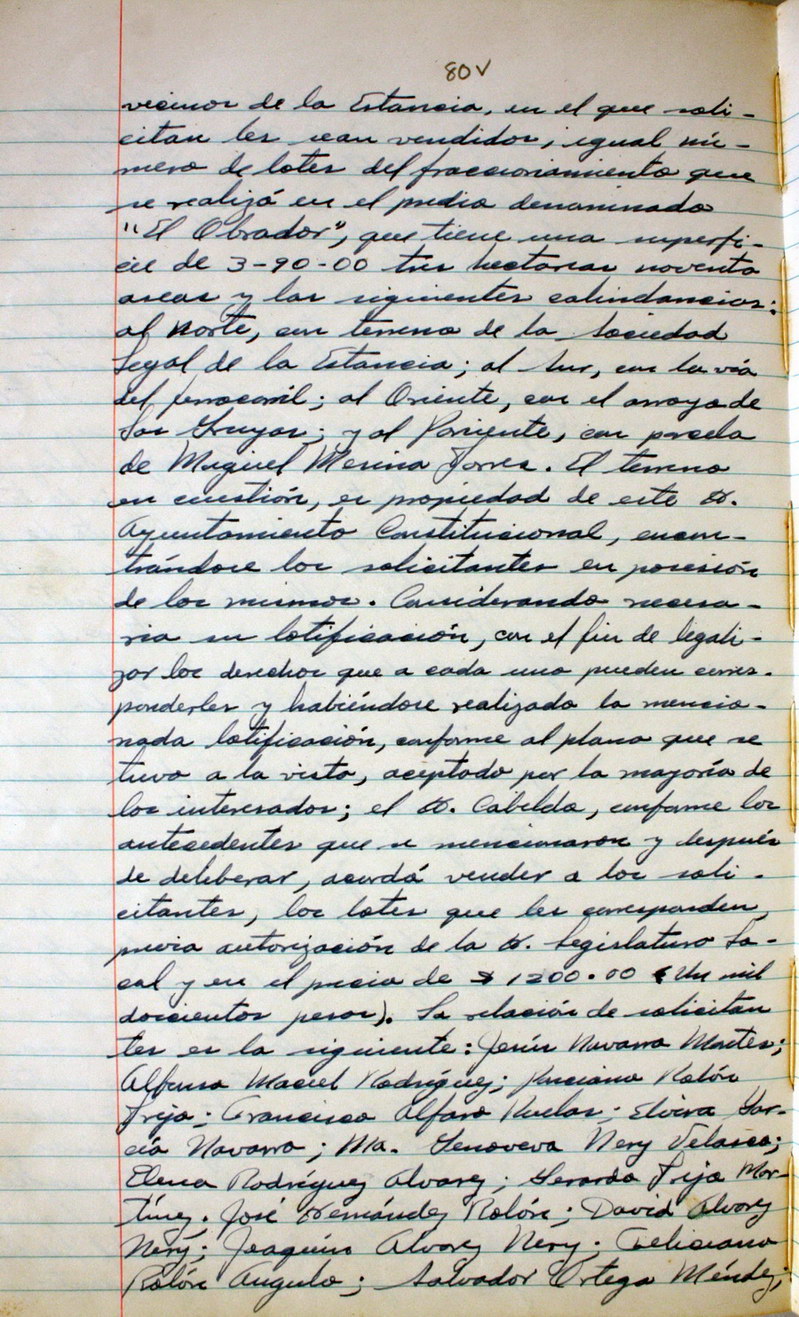 80v
vecinos de la Estancia, en el que soli-
citan les sean vendidos, igual nú-
mero de lotes del fraccionamiento que
se realizó en el predio denominado
"El Obrador", que tiene una superfi-
cie de 3-90-00 tres hectareas noventa
areas y las siguientes colindancias:
al Norte, con terreno de la Sociedad
Legal de la Estancia; al Sur, con la vía
del ferrocarril; al Oriente, con el arroyo de
Los Gruyos; y al Poniente, con parcela
de Miguel Merino Torres. El terreno
en cuestión, es propiedad de este H.
Ayuntamiento Constitucional, encon-
trándose los solicitantes en posesión
de los mismos. Considerando necesa-
ria su lotificación, con el fin de legali-
zar los derechos que a cada uno pueden corres-
ponderles y habiéndose realizado la mencio-
nada lotificación, conforme al plano que se
tuvo a la vista, aceptado por la mayoría de
los interesados; el H. Cabildo, conforme los
antecedentes que se mencionaron y después
de deliberar, acordó vender a los soli-
citantes, los lotes que les corresponden,
previa autorización de la H. Legislatura Lo-
cal y en el precio de $ 1200.00 (Un mil
doscientos pesos). La relación de solicitan
tes es la siguiente: Jesús Navarro Montes;
Alfonso Maciel Rodríguez; Ponciano Rolón
Trejo; Francisco Alfaro Ruelas; Elvira Gar-
cía Navarro; Ma. Genoveva Nery Velasco;
Elena Rodríguez Alvarez; Gerardo Trejo Mar-
tínez. José Hernández Rolón; David Alvarez
Nery; Joaquín Alvarez Nery; Feliciano
Rolón Angulo; Salvador Ortega Méndez;